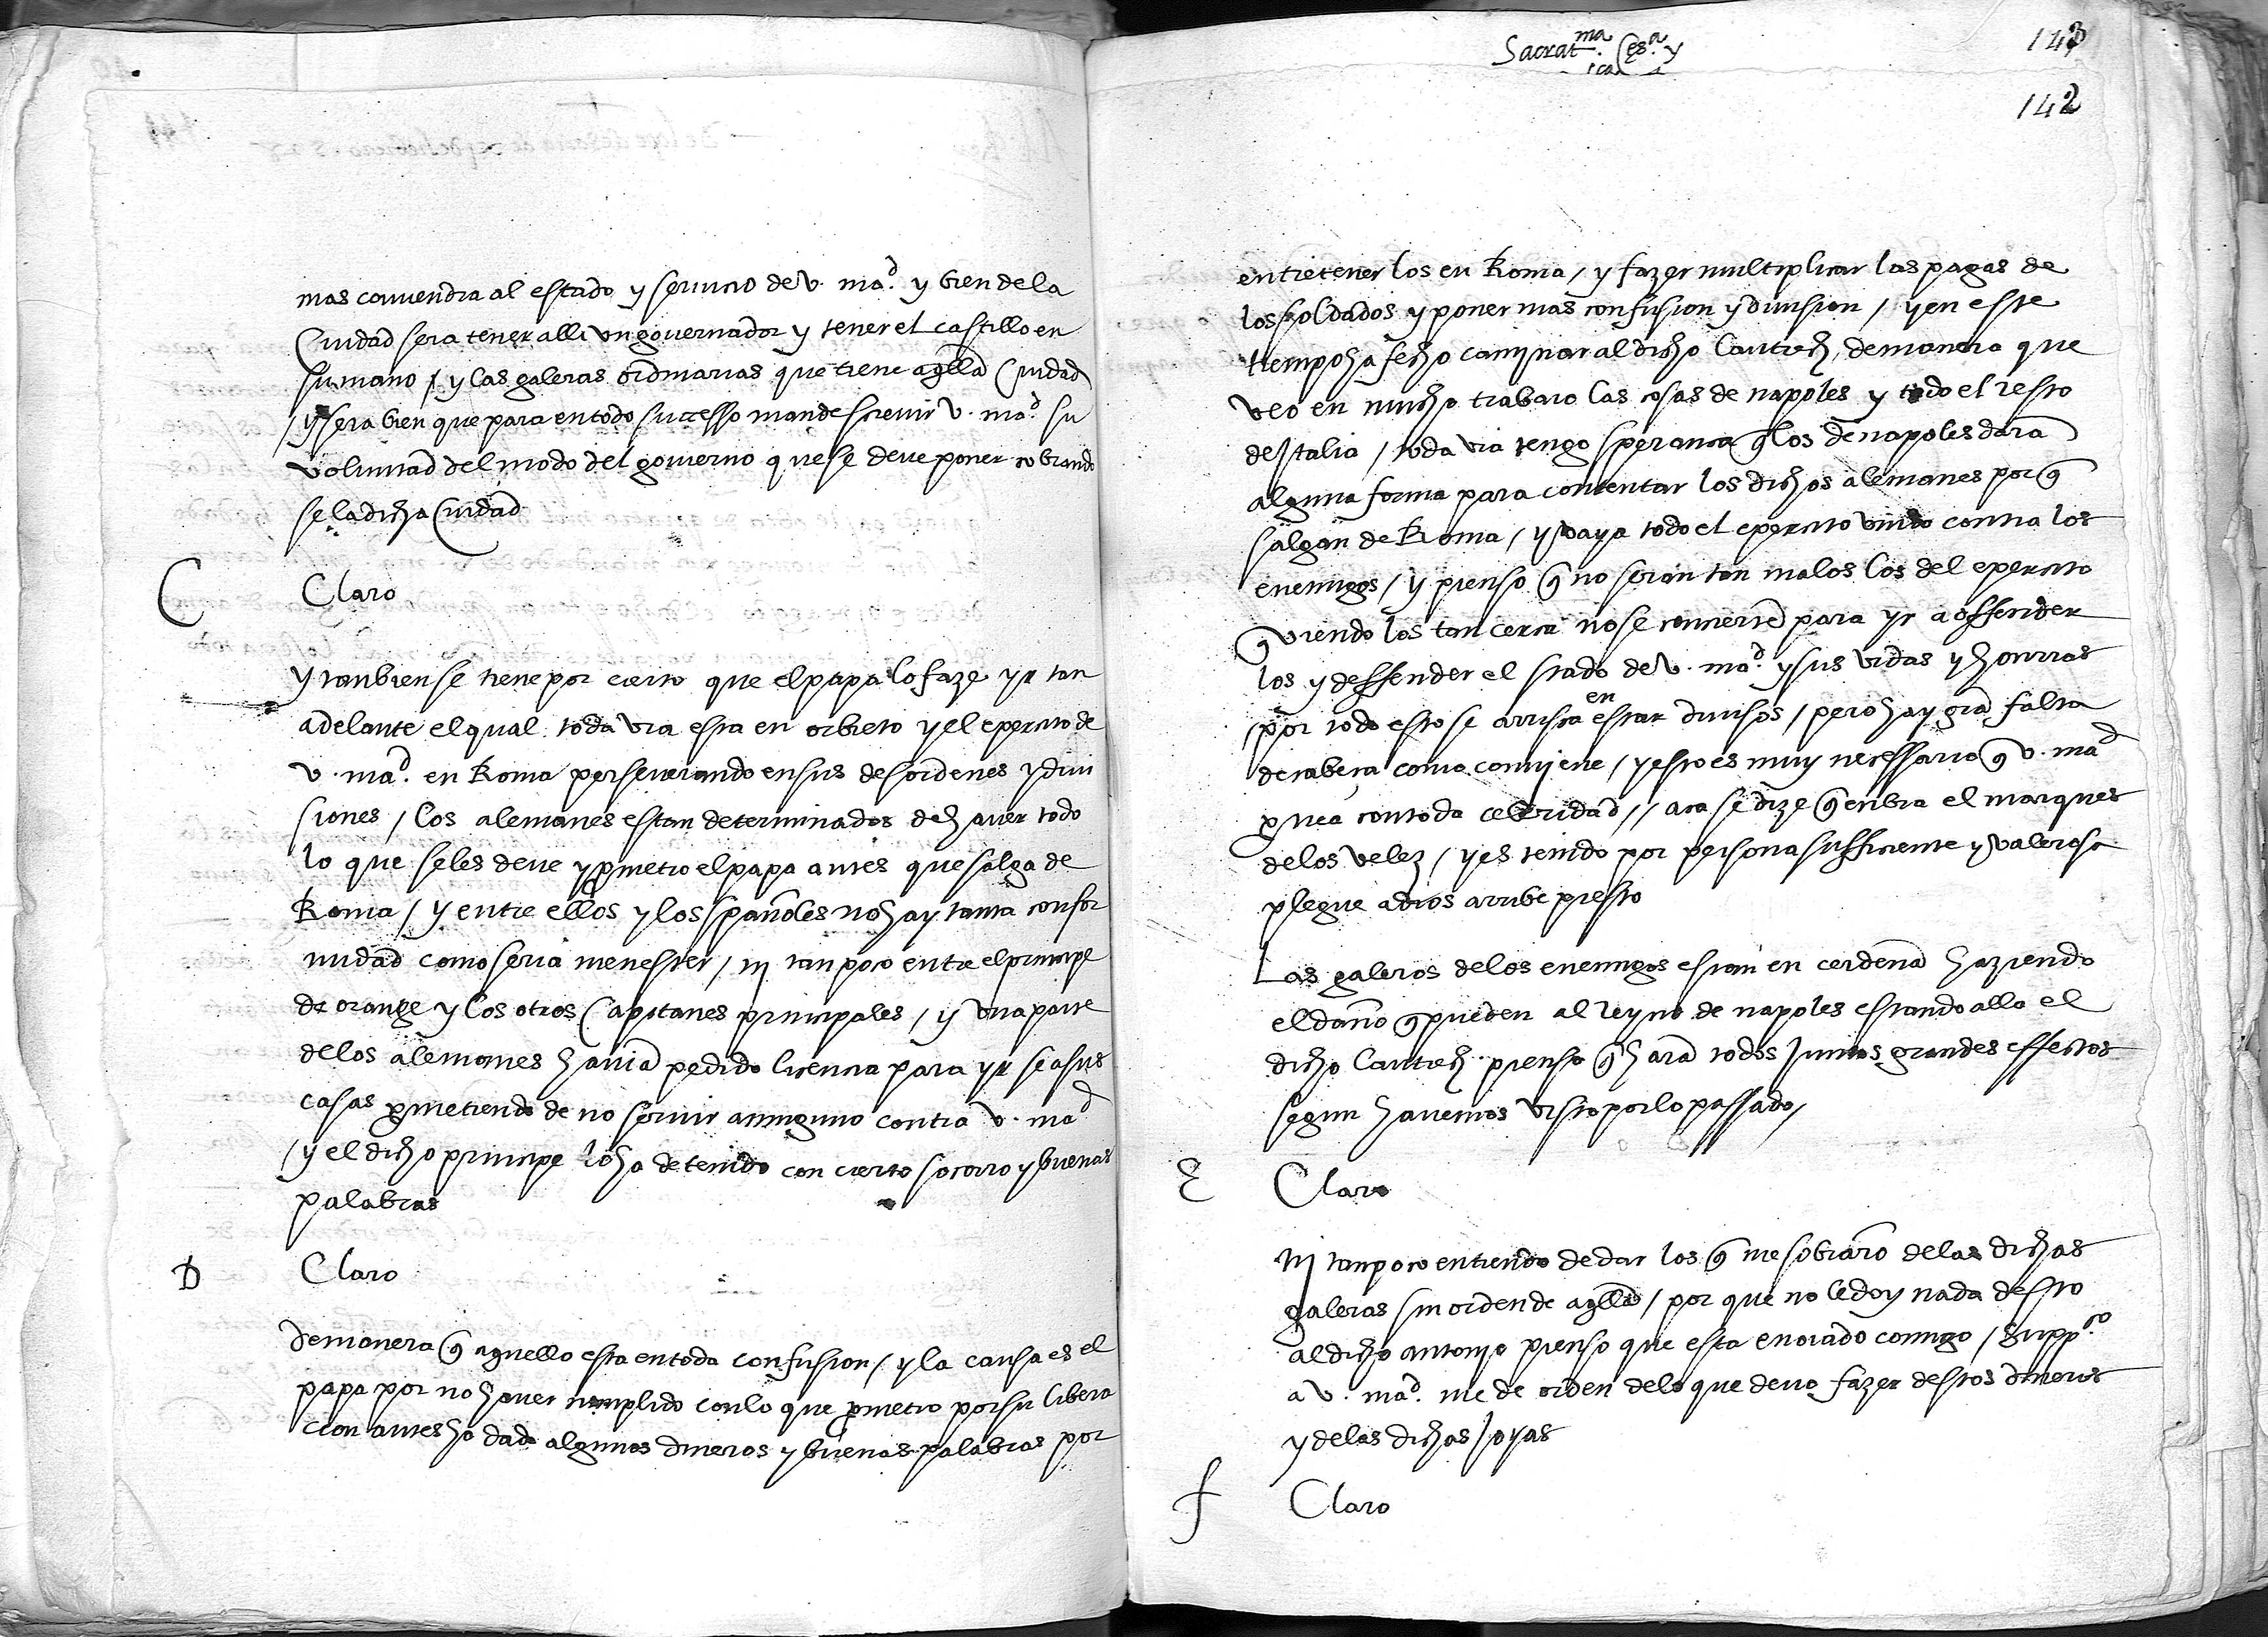 mas convendra al estado y servicio de v. mad. y bien de la
Ciudad sera tener alli un governador y tener el castillo en
su mano / y las galeras ordinarias que tiene aqlla Ciudad
/ y sera bien que para en todo sucesso mande screvir v. mad. su
voluntad del modo del govierno que se deve poner cobrando
se la dicha Ciudad
C Claro
y tanbien se tiene por cierto que el papa lo faze yr tan
adelante el qual toda via esta en orbieto y el exercito de
v. mad. en Roma perseverando en sus desordenes y divi
siones / los alemanes estan determinados de haver todo
lo que se les deve y pmetio el papa antes que salga de
Roma / y entre ellos y los spañoles no hay tanta confor
midad como seria menester / nj tan poco entre el principe
de orange y los otros Capitanes principales / y una parte
de los alemanes havia pedido licencia para yr se a sus
casas pmetiendo de no servir a ninguno contra v. mad
/ y el dicho principe los ha detenido con cierto socorro y buenas
palabras
D Claro
de manera q aquello esta en toda confusion / y la causa es el
papa por no haver cumplido con lo que pmetio por su libera
cion antes ha dado algunos dineros y buenas palabras por
Sacratma. Cesa. y
143
142
entretener los en Roma / y fazer multiplicar las pagas de
los soldados y poner mas confusion y division / y en este
tiempo ha fecho caminar al dicho Lautrech, de manera que
veo en mucho trabaio las cosas de napoles y todo el resto
de Italia / toda via tengo sperança q los de napoles dara
alguna forma para contentar los dichos alemanes por q
salgan de Roma / y vaya todo el exercito unido contra los
enemigos / y pienso q no seran tan malos los del exercito
q viendo los tan cerca no se concierte para yr a offender
los y deffender el stado de v. mad. y sus vidas y honrras
por todo esto se arrisca en estar divisos / pero hay gra falta
de cabeça como conviene / y esto es muy necessario q v. mad
pvea con toda celeridad // aca se dize q enbia el marques
de los velez / y es tenido por persona sufficiente y valerosa
plegue a dios arribe presto
Las galeras de los enemigos estan en cerdeña haziendo
el daño q pueden al reyno de napoles estando alla el
dicho Lautrech pienso q hara todos juntos grandes effectos
segun havemos visto por lo passado /
E Claro
Nj tanpoco entiendo de dar los q me sobraro de las dichas
galeras sin orden de aqlla / por que no le doy nada desto
al dicho antonio pienso que esta enoiado comigo / suppco
a v. mad. me de orden de lo que devo fazer destos dineros
y de las dichas Joyas
f Claro